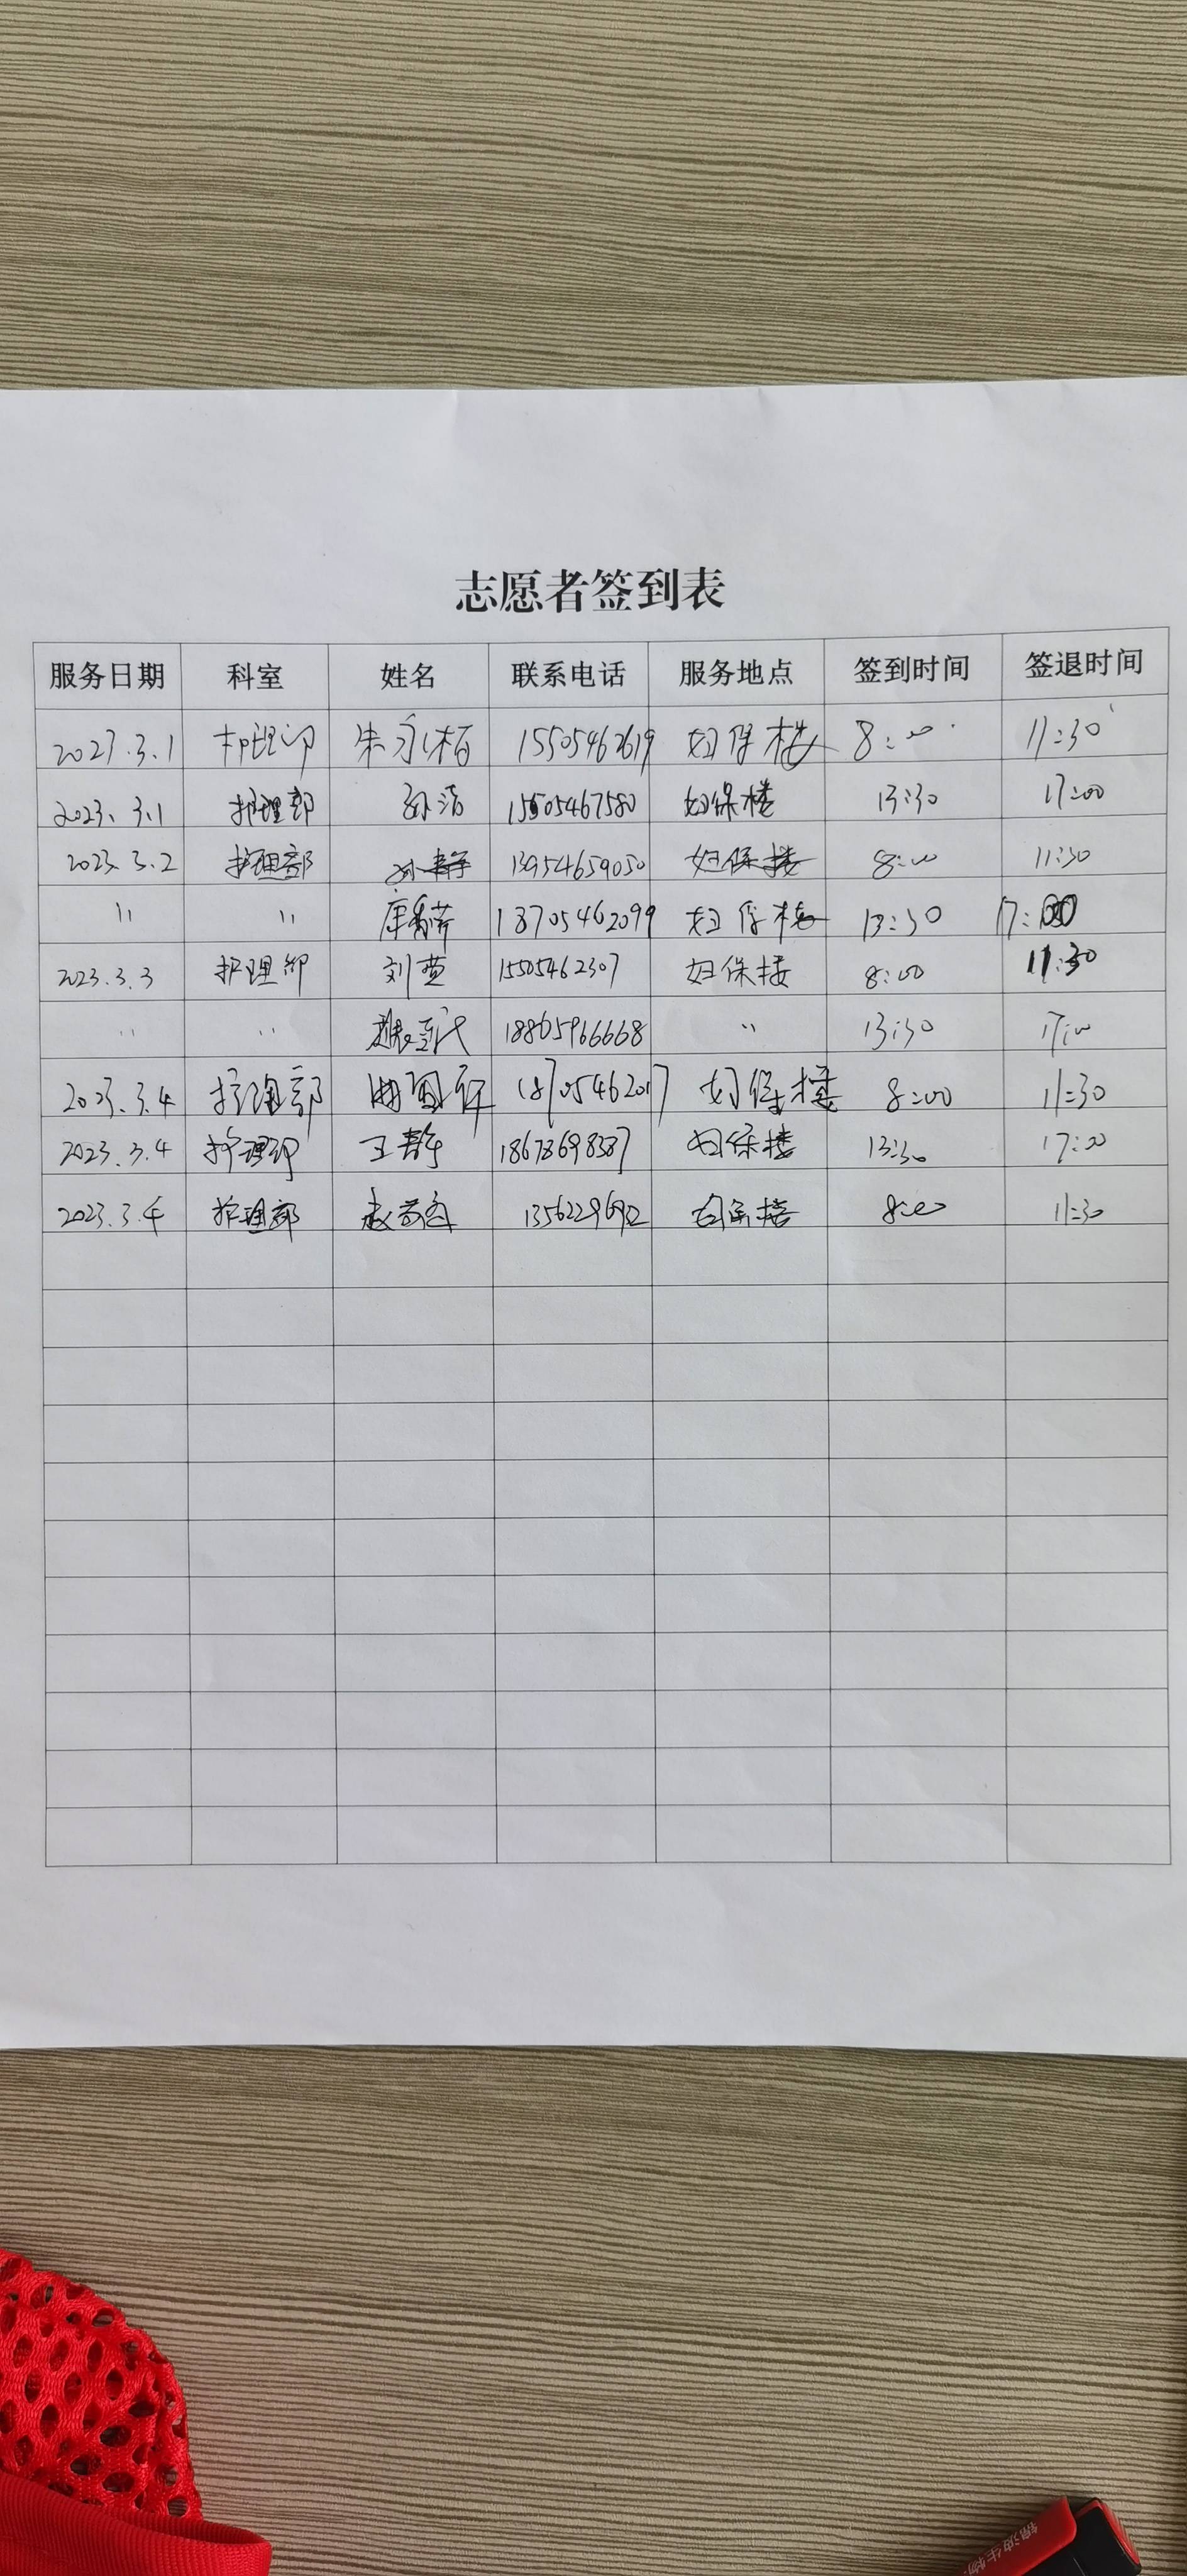 志愿者签到表
服务日期 科室 姓名 联系电话 服务地点 签到时间 签退时间
2023.3.1 护理部 朱永梅 15505462619 妇保楼 8:00 11:30
2023.3.1 护理部 孙洁 15505467580 妇保楼 13:30 17:00
2023.3.2 护理部 孙静 13954659050 妇保楼 8:00 11:30
" " 18705462099 妇保楼 13:30 17:00
2023.3.3 护理部 刘萱 15505462307 妇保楼 8:00 11:30
" " 18865966668 " 13:30 17:00
2023.3.4 护理部 18705462017 妇保楼 8:00 11:30
2023.3.4 护理部 王静 18678698387 妇保楼 13:30 17:00
2023.3.4 护理部 13562229692 妇保楼 8:00 11:30
锦波生物